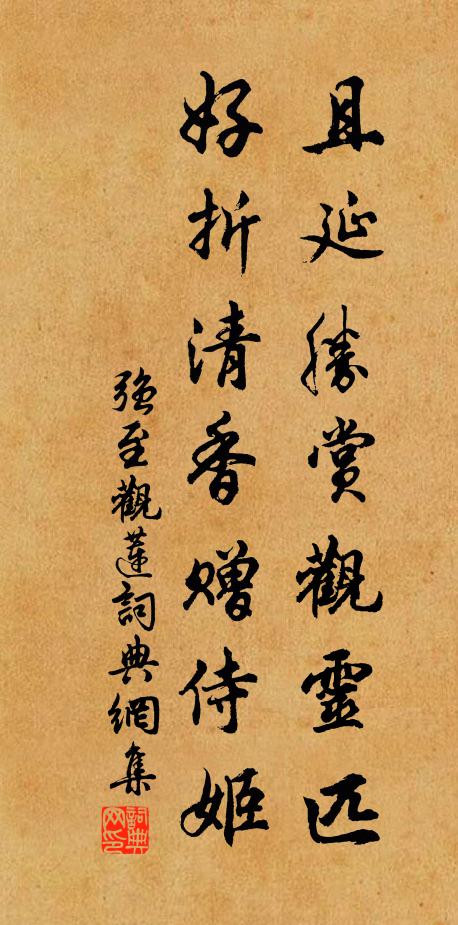 且延勝賞觀靈匹
好折清香贈侍姬
強至觀蓮詞典網集
詞典網印